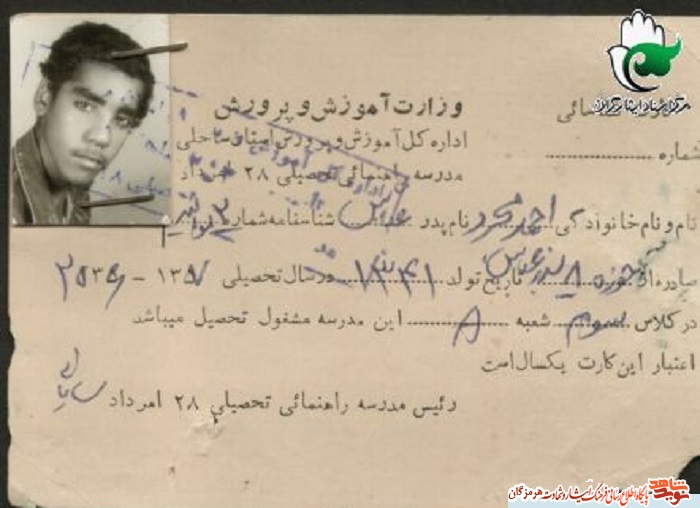 مرکز اسناد ایثارگران
وزارت آموزش و پرورش
اداره کل آموزش و پرورش استان ساحلی
شماره
مدرسه راهنمائی تحصیلی ۲۸ امرداد
نام و نام خانوادگی احمد نام پدر عباس شناسنامه شماره
صادره از حوزه ۸ بندرعباس تاریخ تولد ۱۳۴۱ در سال تحصیلی ۱۳۵۷ -
در کلاس سوم شعبه ۸ این مدرسه مشغول تحصیل میباشد
اعتبار این کارت یکسال است
رئیس مدرسه راهنمائی تحصیلی ۲۸ امرداد
نوید شاهد پایگاه اطلاع رسانی فرهنگ ایثار و شهادت هرمزگان